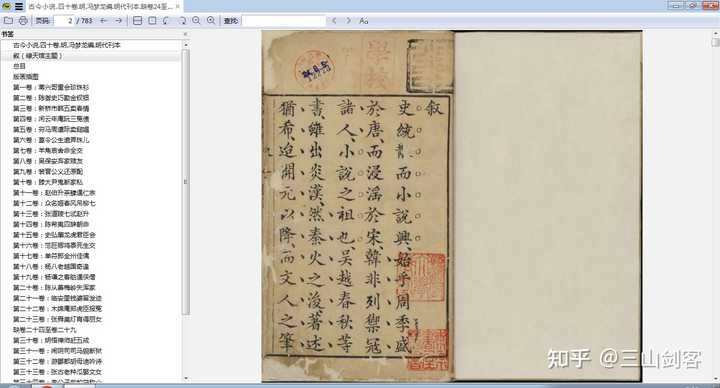 古今小说.四十卷.明.冯梦龙编.明代刊本.缺卷24至...
页码:
2 / 783
查找:
书签
古今小说.四十卷.明.冯梦龙编.明代刊本
叙（绿天馆主题）
总目
版表插图
第一卷：蒋兴哥重会珍珠衫
第二卷：陈御史巧勘金钗钿
第三卷：新桥市韩五卖春情
第四卷：闲云庵阮三冤债
第五卷：穷马周遭际卖䭔媪
第六卷：葛令公生遣弄珠儿
第七卷：羊角哀舍命全交
第八卷：吴保安弃家赎友
第九卷：裴晋公义还原配
第十卷：滕大尹鬼断家私
第十一卷：赵伯升茶肆遇仁宗
第十二卷：众名姬春风吊柳七
第十三卷：张道陵七试赵升
第十四卷：陈希夷四辞朝命
第十五卷：史弘肇龙虎君臣会
第十六卷：范巨卿鸡黍死生交
第十七卷：单符郎全州佳偶
第十八卷：杨八老越国奇逢
第十九卷：杨谦之客舫遇侠僧
第二十卷：陈从善梅岭失浑家
第二十一卷：临安里钱婆留发迹
第二十二卷：木绵庵郑虎臣报冤
第二十三卷：张舜美灯宵得丽女
缺卷二十四至卷二十九
第三十卷：明悟禅师赶五戒
第三十一卷：闹阴司司马貌断狱
第三十二卷：游酆都胡母迪吟诗
第三十三卷：张古老种瓜娶文女
叙
史統散而小說興始乎周季盛
於唐而浸淫於宋韓非列禦寇
諸人小說之祖也吴越春秋等
書雖出炎漢然秦火之後著述
猶希迨開元以降而文人之筆
學校
知乎 @三山剑客